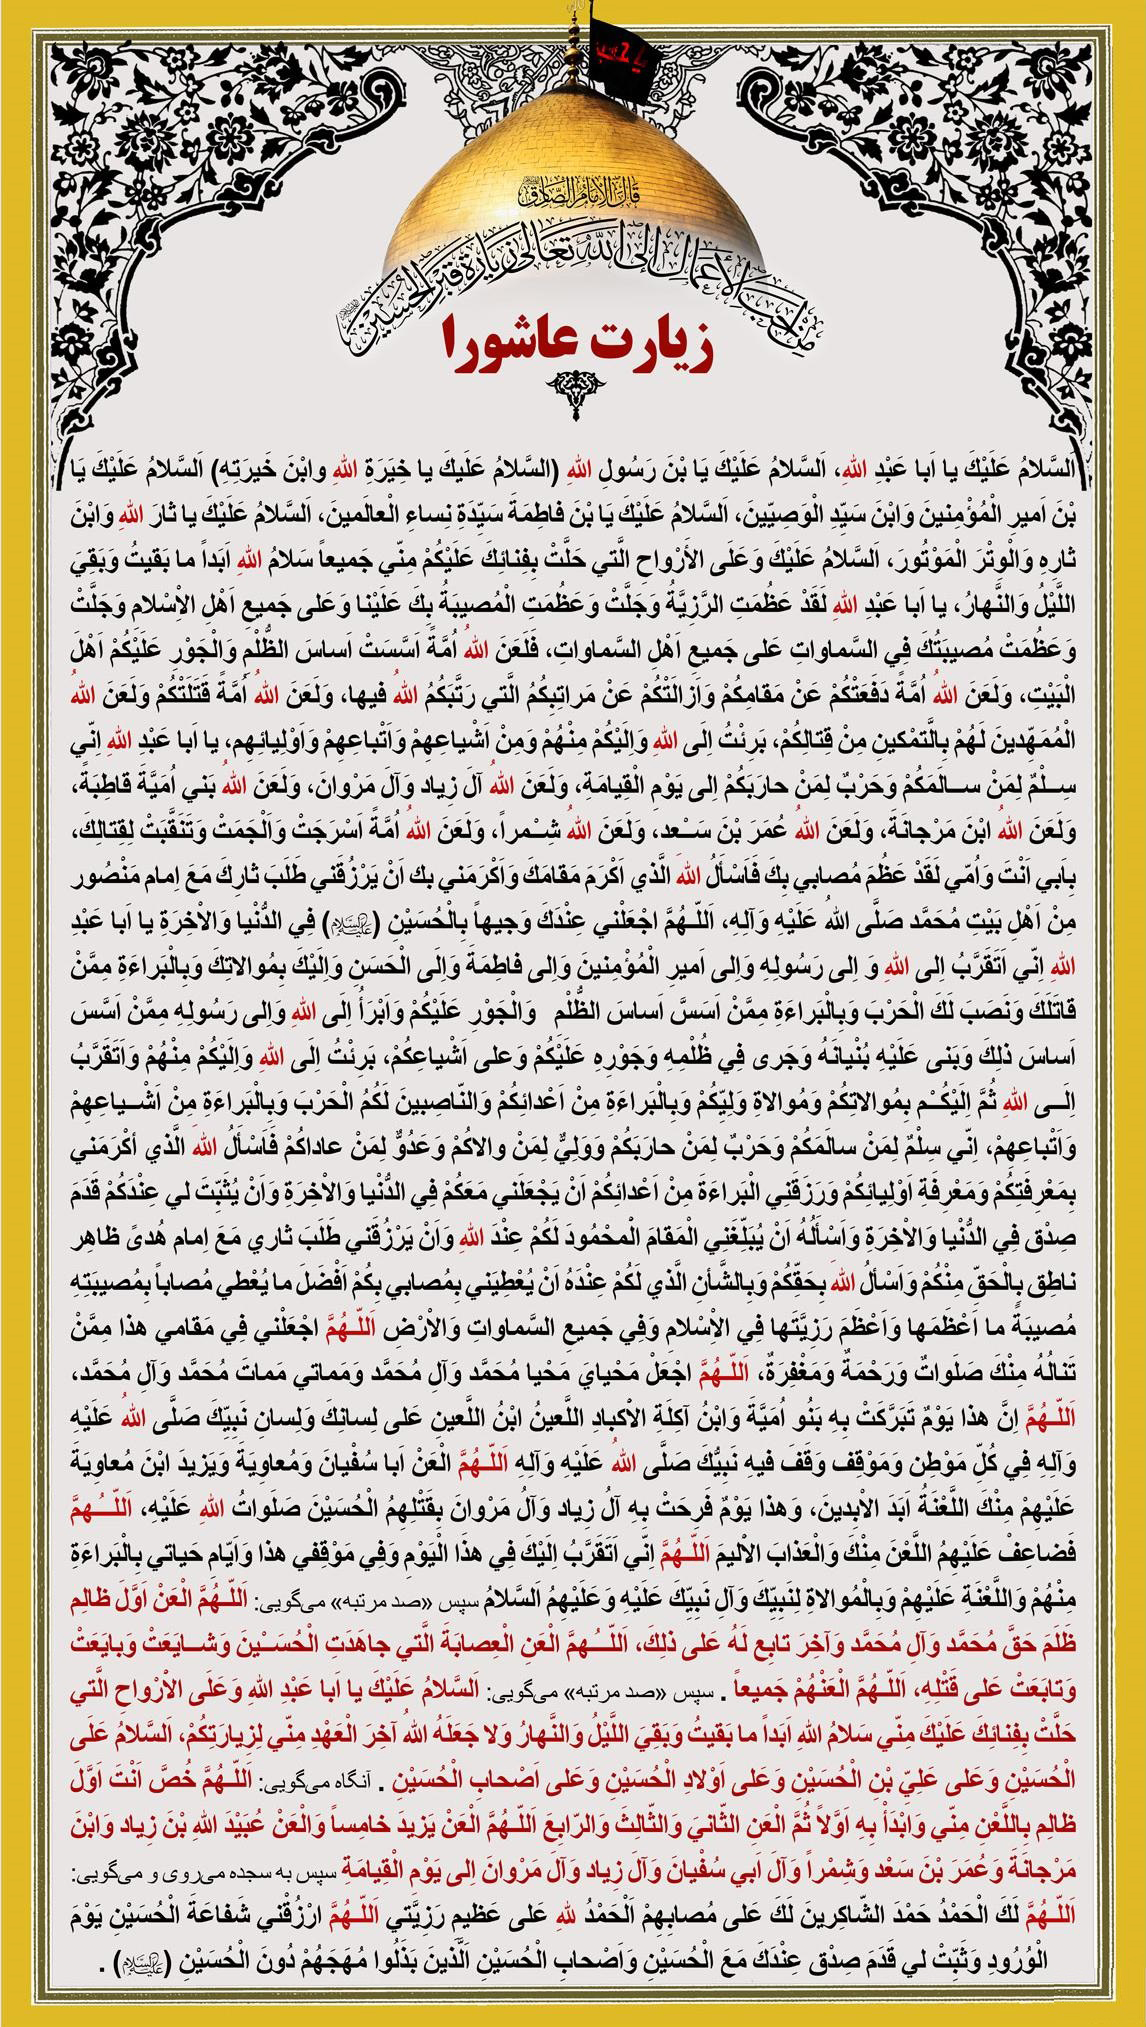 قال الإمام الصادق
من أحب الأعمال إلى الله تعالى زيارة قبر الحسين
زیارت عاشورا
اَلسَّلامُ عَلَيْكَ يا اَبا عَبْدِ اللهِ، اَلسَّلامُ عَلَيْكَ يَا بْنَ رَسُولِ اللهِ (السَّلامُ عَلَيكَ يا خِيَرَةِ اللهِ وابْنَ خَيرَتهِ) اَلسَّلامُ عَلَيْكَ يَا
بْنَ اَميرِ الْمُؤْمِنينَ وَابْنَ سَيِّدِ الْوَصِيّينَ، اَلسَّلامُ عَلَيْكَ يَا بْنَ فاطِمَةَ سَيِّدَةِ نِساءِ الْعالَمينَ، اَلسَّلامُ عَلَيْكَ يا ثارَ اللهِ وَابْنَ
ثارِهِ وَالْوِتْرَ الْمَوْتُورَ، اَلسَّلامُ عَلَيْكَ وَعَلَى الأَرْواحِ الَّتي حَلَّتْ بِفِنائِكَ عَلَيْكُمْ مِنّي جَميعاً سَلامُ اللهِ اَبَداً ما بَقيتُ وَبَقِيَ
اللَّيْلُ وَالنَّهارُ، يا اَبا عَبْدِ اللهِ لَقَدْ عَظُمَتِ الرَّزِيَّةُ وَجَلَّتْ وَعَظُمَتِ الْمُصيبَةُ بِكَ عَلَيْنا وَعَلى جَميعِ اَهْلِ الاْسْلامِ وَجَلَّتْ
وَعَظُمَتْ مُصيبَتُكَ فِي السَّماواتِ عَلى جَميعِ اَهْلِ السَّماواتِ، فَلَعَنَ اللهُ اُمَّةً اَسَّسَتْ اَساسَ الظُّلْمِ وَالْجَوْرِ عَلَيْكُمْ اَهْلَ
الْبَيْتِ، وَلَعَنَ اللهُ اُمَّةً دَفَعَتْكُمْ عَنْ مَقامِكُمْ وَاَزالَتْكُمْ عَنْ مَراتِبِكُمُ الَّتي رَتَّبَكُمُ اللهُ فيها، وَلَعَنَ اللهُ اُمَّةً قَتَلَتْكُمْ وَلَعَنَ اللهُ
الْمُمَهِّدينَ لَهُمْ بِالَّتمْكينِ مِنْ قِتالِكُمْ، بَرِئْتُ اِلَى اللهِ وَاِلَيْكُمْ مِنْهُمْ وَمِنْ اَشْياعِهِمْ وَاَتْباعِهِمْ وَاَوْلِيائِهِم، يا اَبا عَبْدِ اللهِ اِنّي
سِـلْمٌ لِمَنْ سـالَمَكُمْ وَحَرْبٌ لِمَنْ حارَبَكُمْ اِلى يَوْمِ الْقِيامَةِ، وَلَعَنَ اللهُ آلَ زِياد وَآلَ مَرْوانَ، وَلَعَنَ اللهُ بَني اُمَيَّةَ قاطِبَةً،
وَلَعَنَ اللهُ ابْنَ مَرْجانَةَ، وَلَعَنَ اللهُ عُمَرَ بْنَ سَـعْد، وَلَعَنَ اللهُ شِـمْراً، وَلَعَنَ اللهُ اُمَّةً اَسْرَجَتْ وَاَلْجَمَتْ وَتَنَقَّبَتْ لِقِتالِكَ،
بِاَبي اَنْتَ وَاُمّي لَقَدْ عَظُمَ مُصابي بِكَ فَاَسْأَلُ اللهَ الَّذي اَكْرَمَ مَقامَكَ وَاَكْرَمَني بِك اَنْ يَرْزُقَني طَلَبَ ثارِكَ مَعَ اِمام مَنْصُور
مِنْ اَهْلِ بَيْتِ مُحَمَّد صَلَّى اللهُ عَلَيْهِ وَآلِهِ، اَللّـهُمَّ اجْعَلْني عِنْدَكَ وَجيهاً بِالْحُسَيْنِ (عليه السلام) فِي الدُّنْيا وَالاْخِرَةِ يا اَبا عَبْدِ
اللهِ اِنّي اَتَقَرَّبُ اِلى اللهِ وَ اِلى رَسُولِهِ وَاِلى اَميرِ الْمُؤْمِنينَ وَاِلى فاطِمَةَ وَاِلَى الْحَسَنِ وَاِلَيْكَ بِمُوالاتِكَ وَبِالْبَراءَةِ مِمَّنْ
قاتَلَكَ وَنَصَبَ لَكَ الْحَرْبَ وَبِالْبَراءَةِ مِمَّنْ اَسَسَّ اَساسَ الظُّلْمِ وَالْجَوْرِ عَلَيْكُمْ وَاَبْرَأُ اِلَى اللهِ وَاِلى رَسُولِهِ مِمَّنْ اَسَّسَ
اَساسَ ذلِكَ وَبَنى عَلَيْهِ بُنْيانَهُ وَجَرى فِي ظُلْمِهِ وَجَوْرِهِ عَلَيْكُمْ وَعلى اَشْياعِكُمْ، بَرِئْتُ اِلَى اللهِ وَاِلَيْكُمْ مِنْهُمْ وَاَتَقَرَّبُ
اِلَــى اللهِ ثُمَّ اِلَيْكُــمْ بِمُوالاتِكُمْ وَمُوالاةِ وَلِيِّكُمْ وَبِالْبَراءَةِ مِنْ اَعْدائِكُمْ وَالنّاصِبينَ لَكُمُ الْحَرْبَ وَبِالْبَراءَةِ مِنْ اَشْــياعِهِمْ
وَاَتْباعِهِمْ، اِنّي سِلْمٌ لِمَنْ سالَمَكُمْ وَحَرْبٌ لِمَنْ حارَبَكُمْ وَوَلِيٌّ لِمَنْ والاكُمْ وَعَدُوٌّ لِمَنْ عاداكُمْ فَاَسْأَلُ اللهَ الَّذي أكْرَمَني
بِمَعْرِفَتِكُمْ وَمَعْرِفَةِ اَوْلِيائِكُمْ وَرَزَقَني الْبَراءَةَ مِنْ اَعْدائِكُمْ اَنْ يَجْعَلَني مَعَكُمْ فِي الدُّنْيا وَالاْخِرَةِ وَاَنْ يُثَبِّتَ لي عِنْدَكُمْ قَدَمَ
صِدْق فِي الدُّنْيا وَالاْخِرَةِ وَاَسْأَلُهُ اَنْ يُبَلِّغَنِي الْمَقامَ الْمَحْمُودَ لَكُمْ عِنْدَ اللهِ وَاَنْ يَرْزُقَني طَلَبَ ثاري مَعَ اِمام هُدىً ظاهِر
ناطِق بِالْحَقِّ مِنْكُمْ وَاَسْألُ اللهَ بِحَقِّكُمْ وَبِالشَّأنِ الَّذي لَكُمْ عِنْدَهُ اَنْ يُعْطِيَني بِمُصابي بِكُمْ اَفْضَلَ ما يُعْطي مُصاباً بِمُصيبَتِهِ
مُصيبَةً ما اَعْظَمَها وَاَعْظَمَ رَزِيَّتَها فِي الاِسْلامِ وَفِي جَميعِ السَّماواتِ وَالاْرْضِ اَللّـهُمَّ اجْعَلْني فِي مَقامي هذا مِمَّنْ
تَنالُهُ مِنْكَ صَلَواتٌ وَرَحْمَةٌ وَمَغْفِرَةٌ، اَللّـهُمَّ اجْعَلْ مَحْيايَ مَحْيا مُحَمَّد وَآلِ مُحَمَّد وَمَماتي مَماتَ مُحَمَّد وَآلِ مُحَمَّد،
اَللّـهُمَّ اِنَّ هذا يَوْمٌ تَبَرَّكَتْ بِهِ بَنُو اُمَيَّةَ وَابْنُ آكِلَةِ الاْكبادِ اللَّعينُ ابْنُ اللَّعينِ عَلى لِسانِكَ وَلِسانِ نَبِيِّكَ صَلَّى اللهُ عَلَيْهِ
وَآلِهِ فِي كُلِّ مَوْطِن وَمَوْقِف وَقَفَ فيهِ نَبِيُّكَ صَلَّى اللهُ عَلَيْهِ وَآلِهِ اَللّـهُمَّ الْعَنْ اَبا سُفْيانَ وَمُعاوِيَةَ وَيَزيدَ ابْنَ مُعاوِيَةَ
عَلَيْهِمْ مِنْكَ اللَّعْنَةُ اَبَدَ الاْبِدينَ، وَهذا يَوْمٌ فَرِحَتْ بِهِ آلُ زِياد وَآلُ مَرْوانَ بِقَتْلِهِمُ الْحُسَيْنَ صَلَواتُ اللهِ عَلَيْهِ، اَللّــهُمَّ
فَضاعِفْ عَلَيْهِمُ اللَّعْنَ مِنْكَ وَالْعَذابَ الاْليمَ اَللّـهُمَّ اِنّي اَتَقَرَّبُ اِلَيْكَ فِي هذَا الْيَوْمِ وَفِي مَوْقِفي هذا وَاَيّامِ حَياتي بِالْبَراءَةِ
مِنْهُمْ وَاللَّعْنَةِ عَلَيْهِمْ وَبِالْمُوالاةِ لِنَبِيِّكَ وَآلِ نَبِيِّكَ عَلَيْهِ وَعَلَيْهِمُ اَلسَّلامُ سپس «صد مرتبه» می‌گویی: اَللّـهُمَّ الْعَنْ اَوَّلَ ظالِم
ظَلَمَ حَقَّ مُحَمَّد وَآلِ مُحَمَّد وَآخِرَ تابِع لَهُ عَلى ذلِكَ، اَللّــهُمَّ الْعَنِ الْعِصابَةَ الَّتي جاهَدَتِ الْحُسَــيْنَ وَشــايَعَتْ وَبايَعَتْ
وَتابَعَتْ عَلى قَتْلِهِ، اَللّـهُمَّ الْعَنْهُمْ جَميعاً . سپس «صد مرتبه» می‌گویی: اَلسَّلامُ عَلَيْكَ يا اَبا عَبْدِ اللهِ وَعَلَى الاْرْواحِ الَّتي
حَلَّتْ بِفِنائِكَ عَلَيْكَ مِنّي سَلامُ اللهِ اَبَداً ما بَقيتُ وَبَقِيَ اللَّيْلُ وَالنَّهارُ وَلا جَعَلَهُ اللهُ آخِرَ الْعَهْدِ مِنّي لِزِيارَتِكُمْ، اَلسَّلامُ عَلَى
الْحُسَيْنِ وَعَلى عَلِيِّ بْنِ الْحُسَيْنِ وَعَلى اَوْلادِ الْحُسَيْنِ وَعَلى اَصْحابِ الْحُسَيْنِ . آنگاه می‌گویی: اَللّـهُمَّ خُصَّ اَنْتَ اَوَّلَ
ظالِم بِاللَّعْنِ مِنّي وَابْدَأْ بِهِ اَوَّلاً ثُمَّ الْعَنِ الثّانيَ وَالثّالِثَ وَالرّابِعَ اَللّـهُمَّ الْعَنْ يَزيدَ خامِساً وَالْعَنْ عُبَيْدَ اللهِ بْنَ زِياد وَابْنَ
مَرْجانَةَ وَعُمَرَ بْنَ سَعْد وَشِمْراً وَآلَ اَبي سُفْيانَ وَآلَ زِياد وَآلَ مَرْوانَ اِلى يَوْمِ الْقِيامَةِ سپس به سجده می‌روی و می‌گویی:
اَللّـهُمَّ لَكَ الْحَمْدُ حَمْدَ الشّاكِرينَ لَكَ عَلى مُصابِهِمْ اَلْحَمْدُ للهِ عَلى عَظيمِ رَزِيَّتي اَللّـهُمَّ ارْزُقْني شَفاعَةَ الْحُسَيْنِ يَوْمَ
الْوُرُودِ وَثَبِّتْ لي قَدَمَ صِدْق عِنْدَكَ مَعَ الْحُسَيْنِ وَاَصْحابِ الْحُسَيْنِ الَّذينَ بَذَلُوا مُهَجَهُمْ دُونَ الْحُسَيْنِ (عليه السلام) .